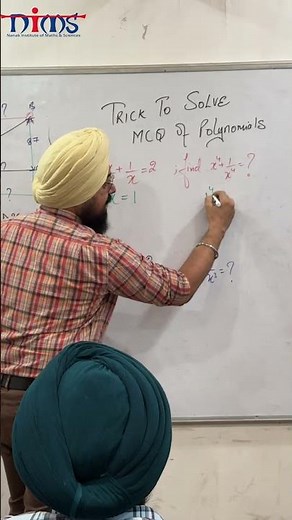 NIMS
Nanak Institute of Maths & Sciences
TRICK TO SOLVE
MCQ OF POLYNOMIALS
+ 1/x = 2 ; find x⁴ + 1/x⁴ = ?
x = 1
= ?